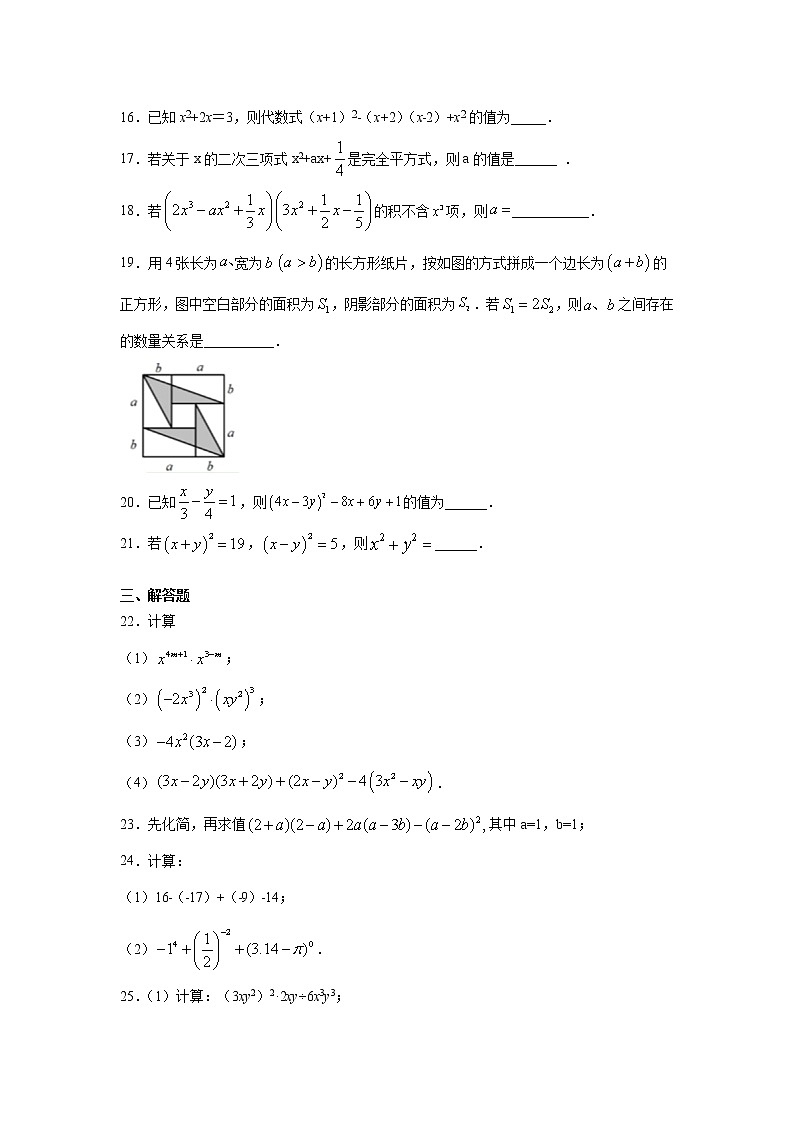 16.已知 x²+2x=3,则代数式(x+1)²-(x+2)(x-2)+x² 的值为_____.
17.若关于 x 的二次三项式 x²+ax+1/4 是完全平方式,则 a 的值是______ .
18.若(2x³-ax²+1/3x)(3x²+1/2x-1/5)的积不含 x³ 项,则 a=___________.
19.用 4 张长为 a、宽为 b (a>b)的长方形纸片,按如图的方式拼成一个边长为(a+b)的
正方形,图中空白部分的面积为 S₁,阴影部分的面积为 S₂.若 S₁=2S₂,则 a、b 之间存在
的数量关系是__________.
b a
a b
b a
a b
20.已知 x/3-y/4=1,则(4x-3y)²-8x+6y+1的值为______.
21.若(x+y)²=19,(x-y)²=5,则 x²+y²=______.
三、解答题
22.计算
(1)x⁴ᵐ⁺¹·x³⁻ᵐ;
(2)(-2x³)²·(xy²)³;
(3)-4x²(3x-2);
(4)(3x-2y)(3x+2y)+(2x-y)²-4(3x²-xy).
23.先化简,再求值(2+a)(2-a)+2a(a-3b)-(a-2b)²,其中 a=1,b=1;
24.计算:
(1)16-(-17)+(-9)-14;
(2)-1⁴+(1/2)⁻²+(3.14-π)⁰.
25.(1)计算:(3xy²)²·2xy÷6x³y³;